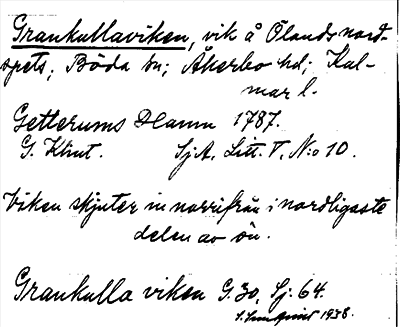 Grankullaviken, vik å Ölands nord-
spets; Böda sn; Åkerbo hd; Kal-
mar l.
Getterums Hamn 1787.
G. Klint. Sj.A. Litt. V, N:o 10.
Viken skjuter in norrifrån i nordligaste
delen av ön.
Grankulla viken G.30, Sj. 64.
1938.